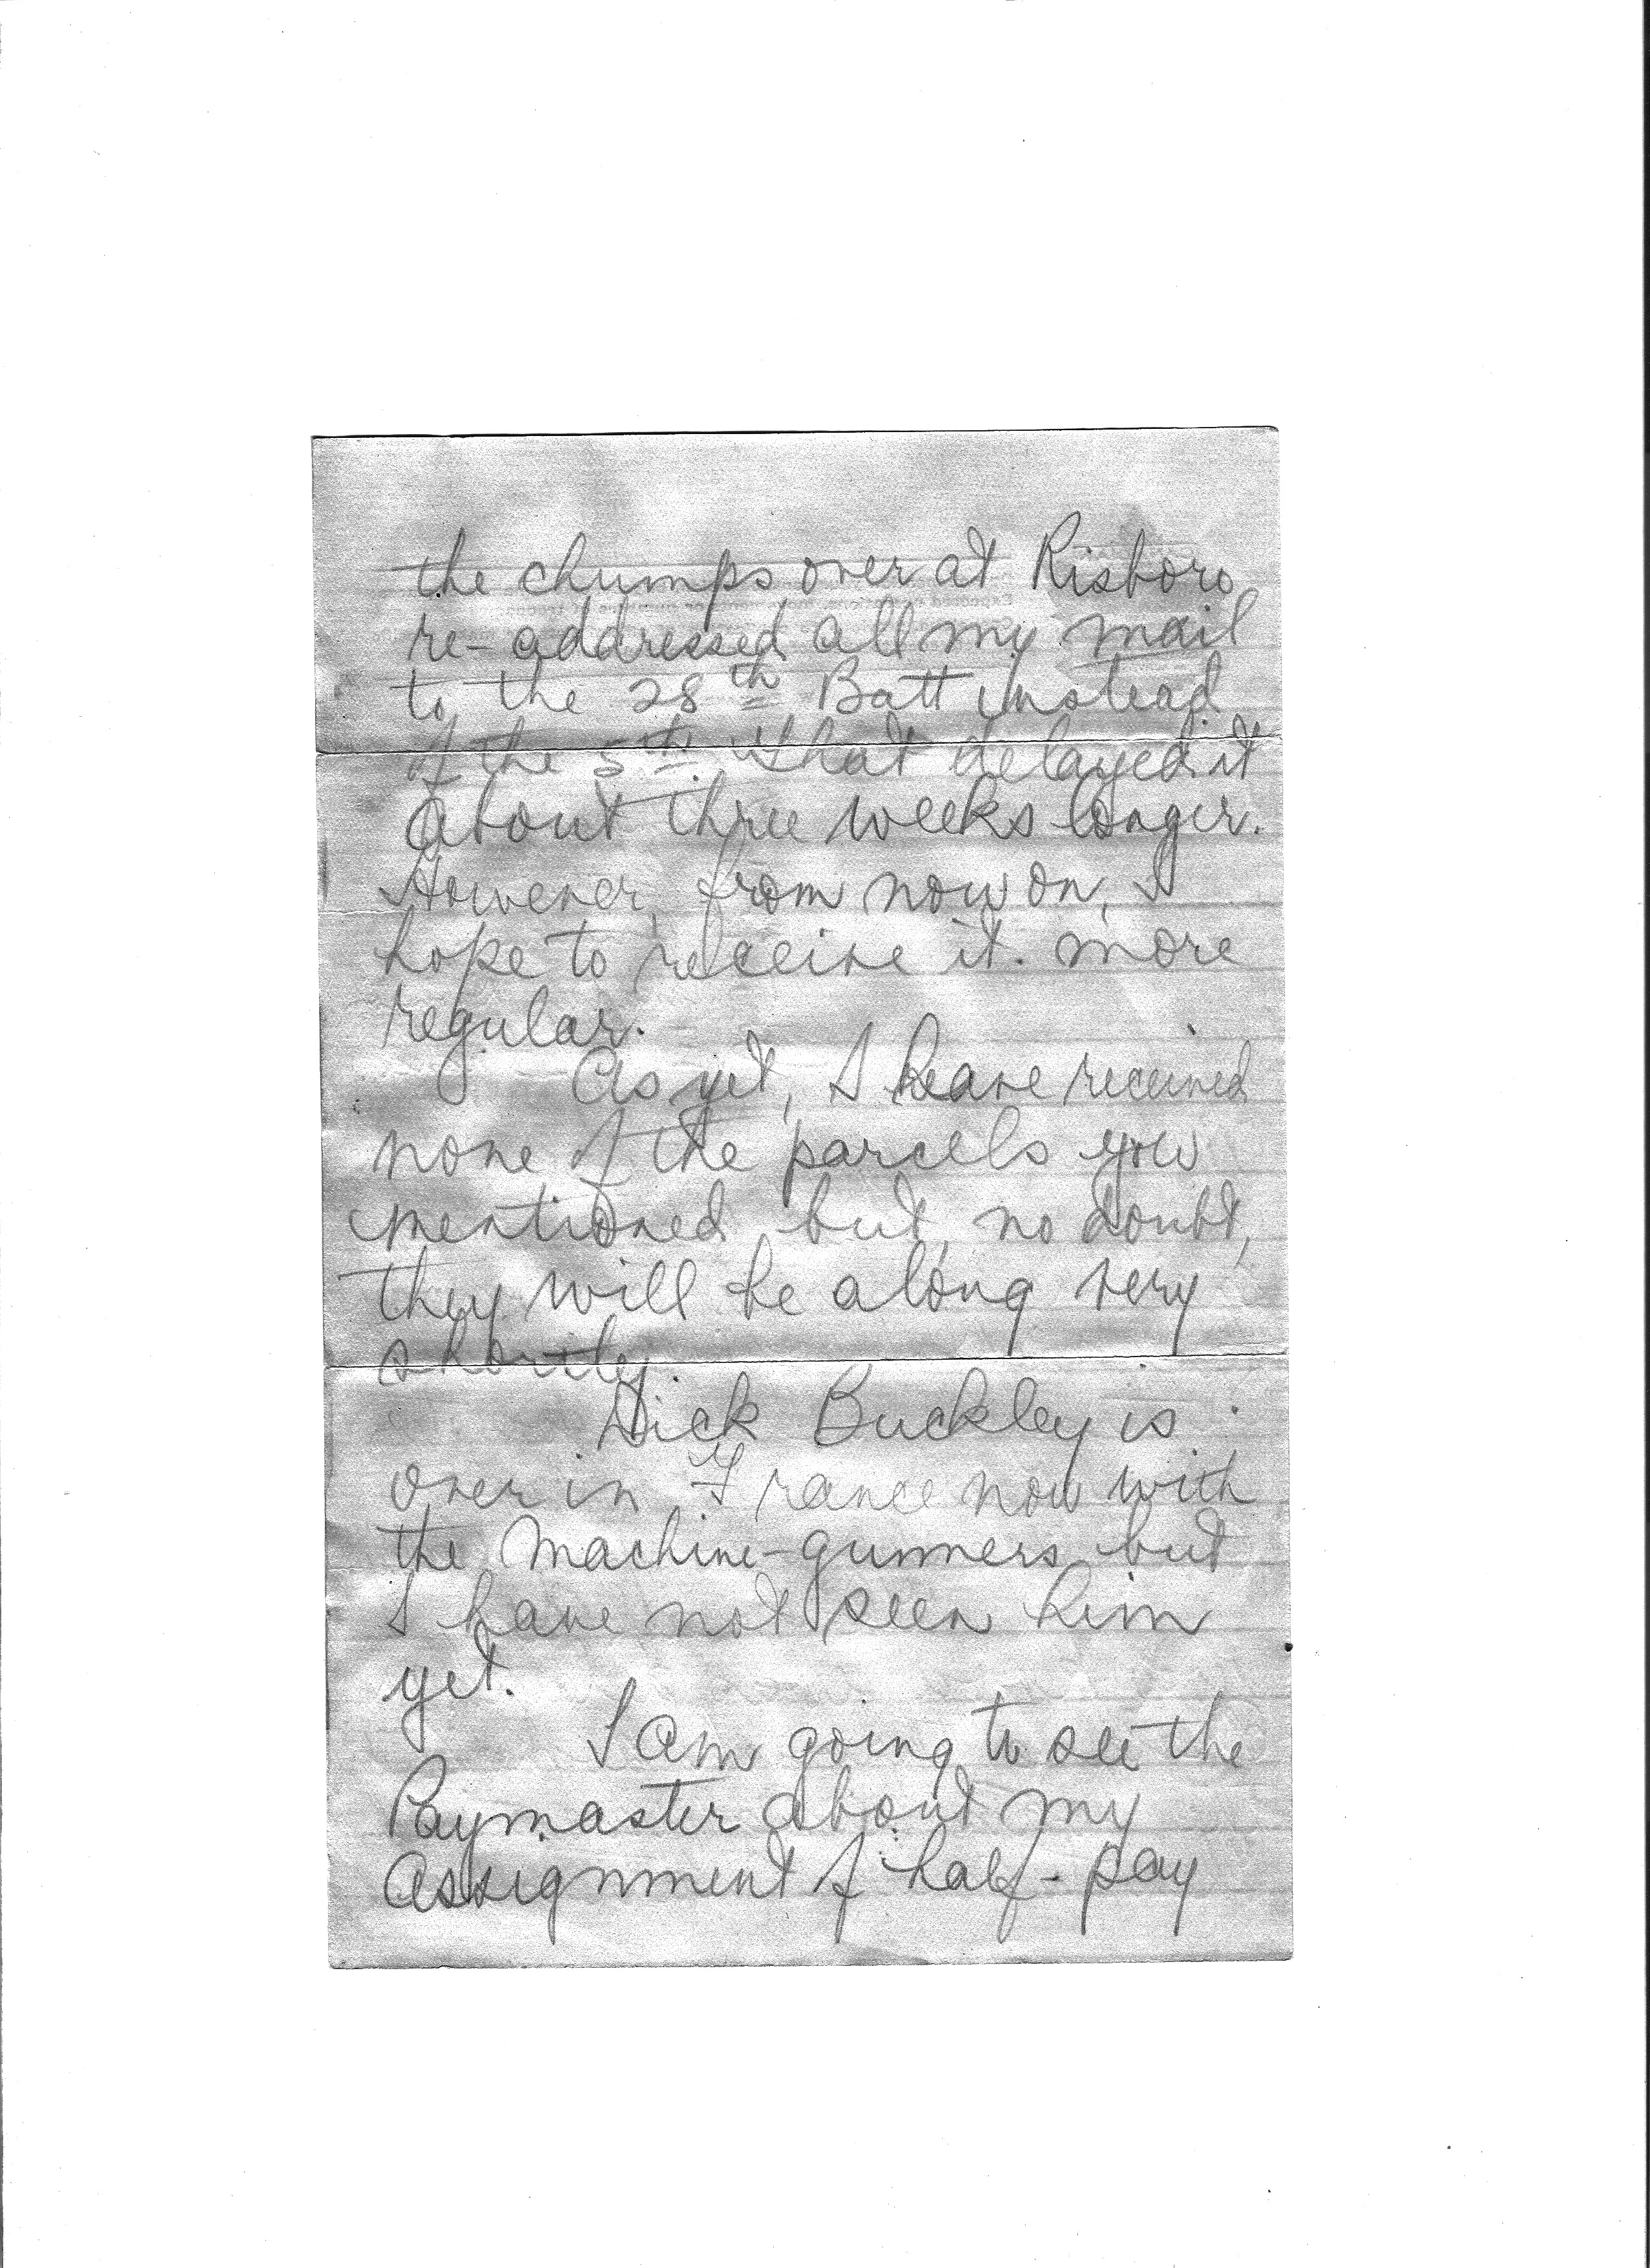 the chumps over at Risboro
re-addressed all my mail
to the 28th Batt instead
of the 5th. That delayed it
about three weeks longer.
However, from now on, I
hope to receive it more
regular.
As yet, I have received
none of the parcels you
mentioned, but, no doubt,
they will be along very
shortly.
Dick Buckley is
over in France now with
the machine-gunners but
I have not seen him
yet.
I am going to see the
Paymaster about my
assignment of half-pay